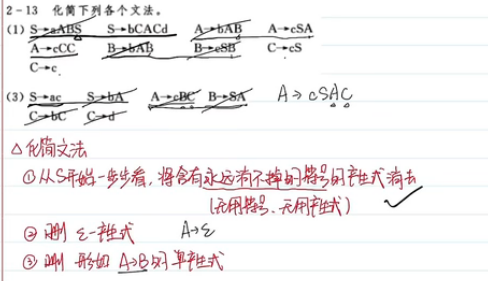 2-13 化简下列各个文法。
(1) S→aABS S→bCACd A→bAB A→cSA
A→cCC B→bAB B→cSB C→cS
C→c
(3) S→ac S→bA A→cBC B→SA A→cSAC
C→bC C→d
△化简文法
①从S开始一步步看，将含有永远消不掉的符号的产生式消去
(无用符号、无用产生式)
② 删 ε-产生式 A→ε
③ 删 形如 A→B的单产生式